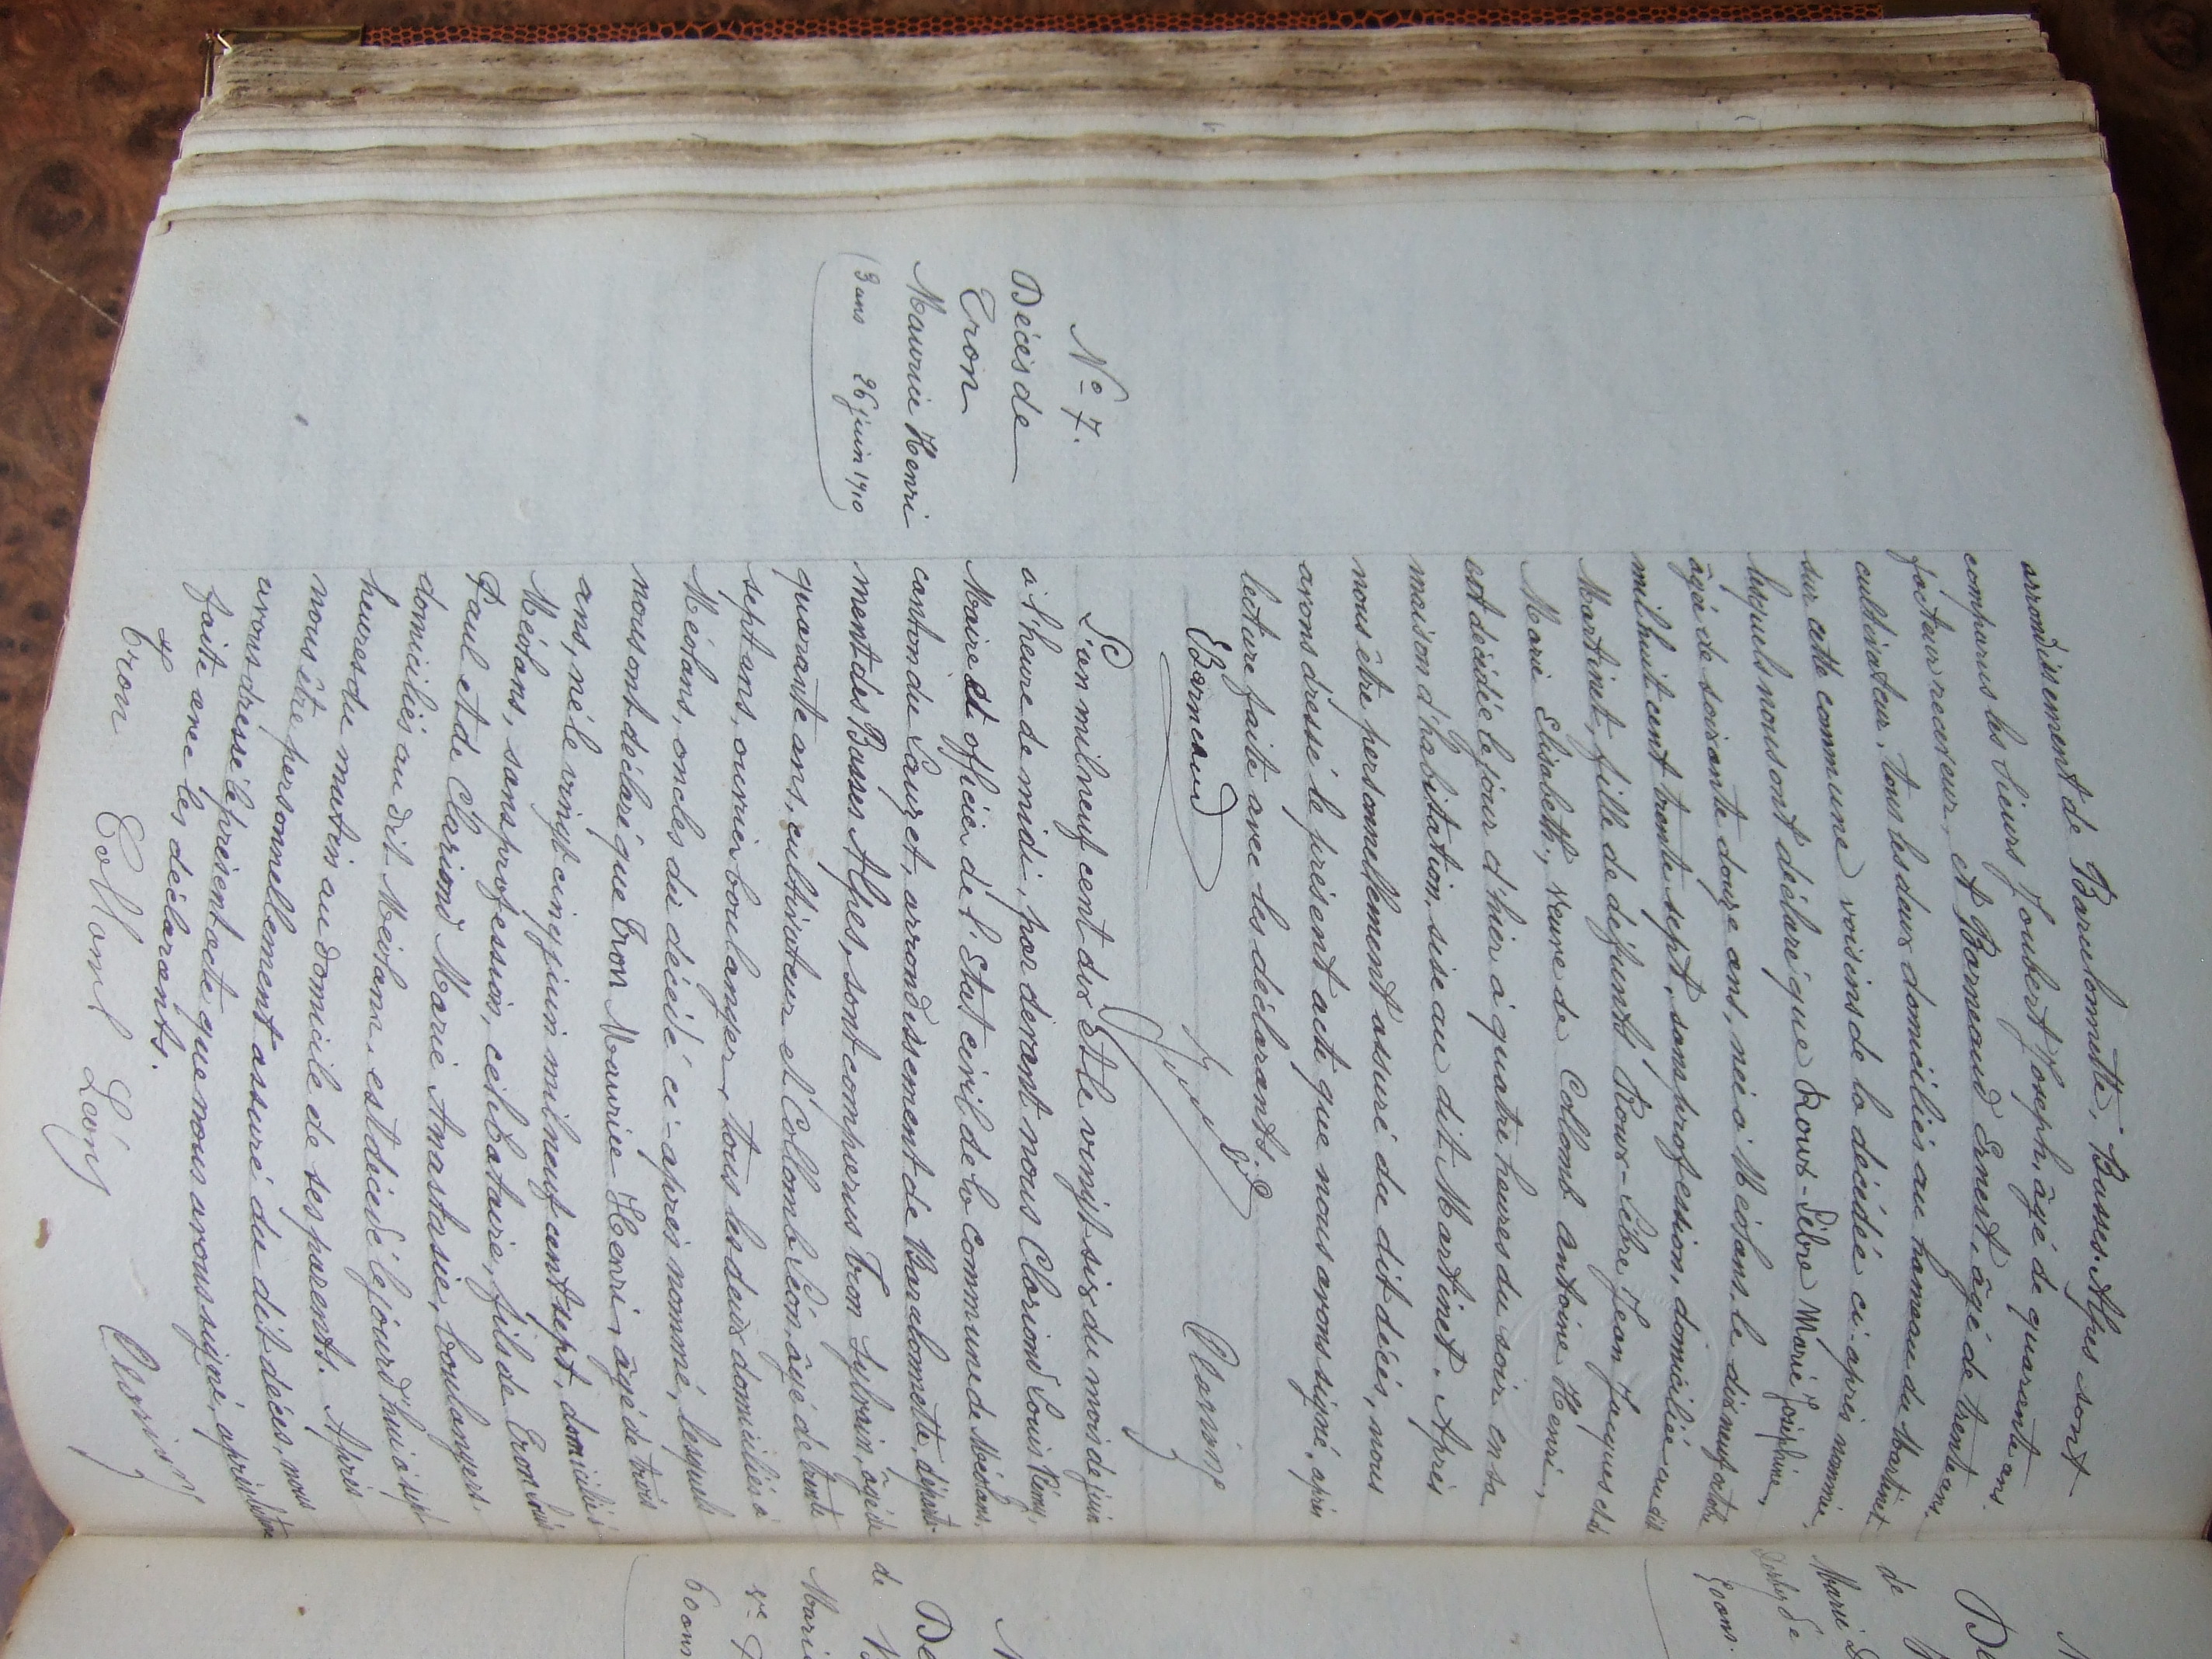 arrondissement de Barcelonnette, Basses-Alpes sont
comparus les sieurs Joubert Joseph, âgé de quarante ans
facteur receveur, et Barneaud Ernest, âgé de trente ans,
cultivateur, tous les deux domiciliés au hameau du Martinet
sur cette commune voisins de la décédée ci-après nommée,
lesquels nous ont déclaré que Roux-Libre Marie Joséphine,
âgée de soixante douze ans, née à Méolans, le dix neuf octobre
mil huit cent trente sept, sans profession, domiciliée au dit
Martinet, fille de défunts Roux-Libre Jean Jacques et de
Marie Elisabeth, veuve de Colomb antoine Henri,
est décédée le jour d'hier à quatre heures du soir en sa
maison d'habitation, sise au dit Martinet. Après
nous être personnellement assuré du dit décès, nous
avons dressé le présent acte que nous avons signé, après
lecture faite avec les déclarants.
EBarneaud
Clariond
N° 7.
Décès de
Tron
Maurice Henri
3 ans 26 juin 1910
L'an mil neuf cent dix Et le vingt-six du mois de juin
à l'heure de midi, par devant nous Clariond Louis Rémy,
Maire et officier de l'Etat civil de la Commune de Méolans,
canton du Lauzet, arrondissement de Barcelonnette, départe-
ment des Basses Alpes, sont comparus Tron Sylvain, âgé de
quarante ans, cultivateur et Collomb Léon, âgé de trente
sept ans, ouvrier boulanger, tous les deux domiciliés à
Méolans, oncles du décédé ci-après nommé, lesquels
nous ont déclaré que Tron Maurice Henri, âgé de trois
ans, né le vingt cinq juin mil neuf cent sept, domicilié à
Méolans, sans profession, célibataire, fils de Tron Louis
Paul et de Clariond Marie Anastasie, boulangers,
domiciliés au dit Méolans, est décédé le jourd'hui à sept
heures du matin au domicile de ses parents. Après
nous être personnellement assuré du dit décès, nous
avons dressé le présent acte que nous avons signé, après lecture
faite avec les déclarants.
Tron Collomb Léon Clariond
de
Marie
60 ans
de
Marie